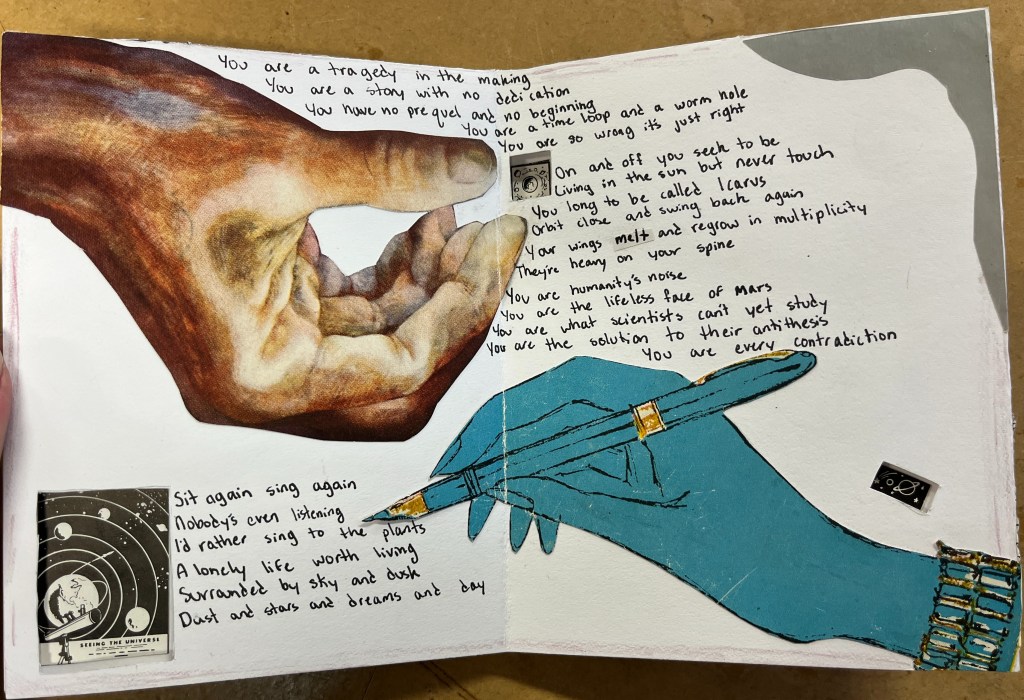 You are a tragedy in the making
You are a story with no dedication
You have no prequel and no beginning
You are a time loop and a worm hole
You are so wrong it's just right
On and off you seek to be
Living in the sun but never touch
You long to be called Icarus
Orbit close and swing back again
Your wings melt and regrow in multiplicity
They're heavy on your spine
You are humanity's noise
You are the lifeless face of mars
You are what scientists can't yet study
You are the solution to their antithesis
You are every contradiction
Sit again sing again
Nobody's even listening
I'd rather sing to the plants
A lonely life worth living
Surranded by sky and dusk
Dust and stars and dreams and day
SEEING THE UNIVERSE